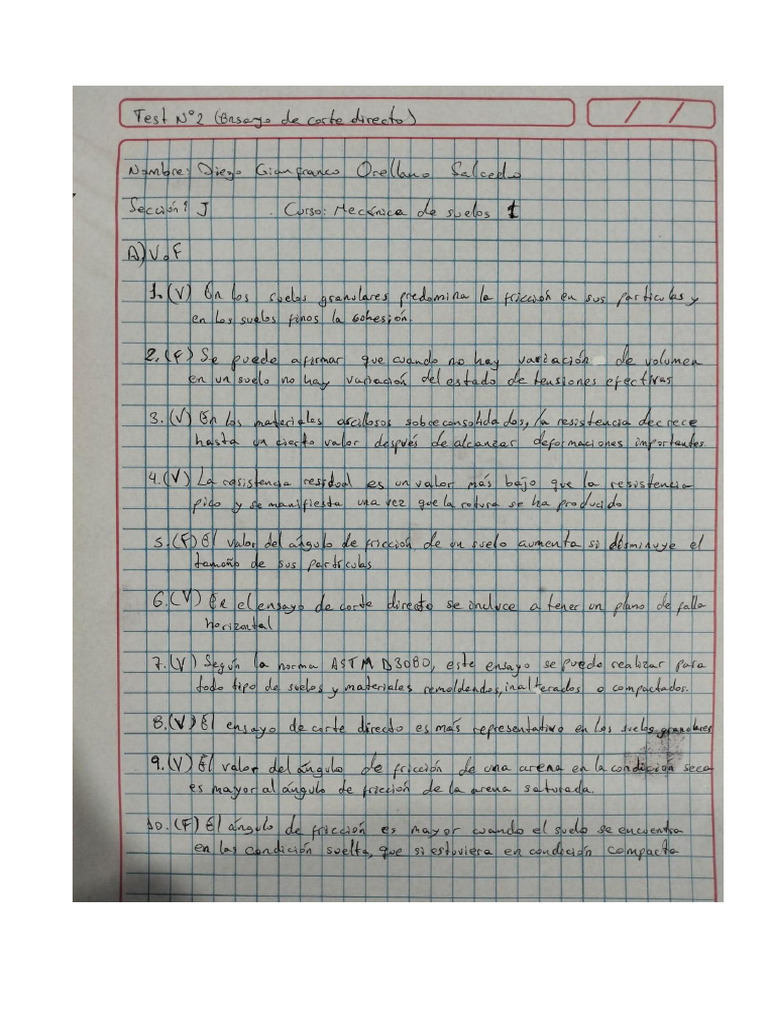 Test N°2 (Ensayo de corte directo)
/ /
Nombre: Diego Gianfranco Orellano Salcedo
Sección: J . Curso: Mecánica de suelos 1
A) V o F
1. (V) En los suelos granulares predomina la fricción en sus partículas y
en los suelos finos la cohesión.
2. (F) Se puede afirmar que cuando no hay variación de volumen
en un suelo no hay variación del estado de tensiones efectivas
3. (V) En los materiales arcillosos sobreconsolidados, la resistencia decrece
hasta un cierto valor después de alcanzar deformaciones importantes
4. (V) La resistencia residual es un valor más bajo que la resistencia
pico y se manifiesta una vez que la rotura se ha producido
5. (F) El valor del ángulo de fricción de un suelo aumenta si disminuye el
tamaño de sus partículas
6. (V) En el ensayo de corte directo se incluce a tener un plano de falla
horizontal
7. (V) Según la norma ASTM D3080, este ensayo se puede realizar para
todo tipo de suelos y materiales remoldendos, inalterados o compactados.
8. (V) El ensayo de corte directo es más representativo en los suelos granulares
9. (V) El valor del ángulo de fricción de una arena en la condición seca
es mayor al ángulo de fricción de la arena saturada.
10. (F) El ángulo de fricción es mayor cuando el suelo se encuentra
en las condición suelta, que si estuviera en condición compacta